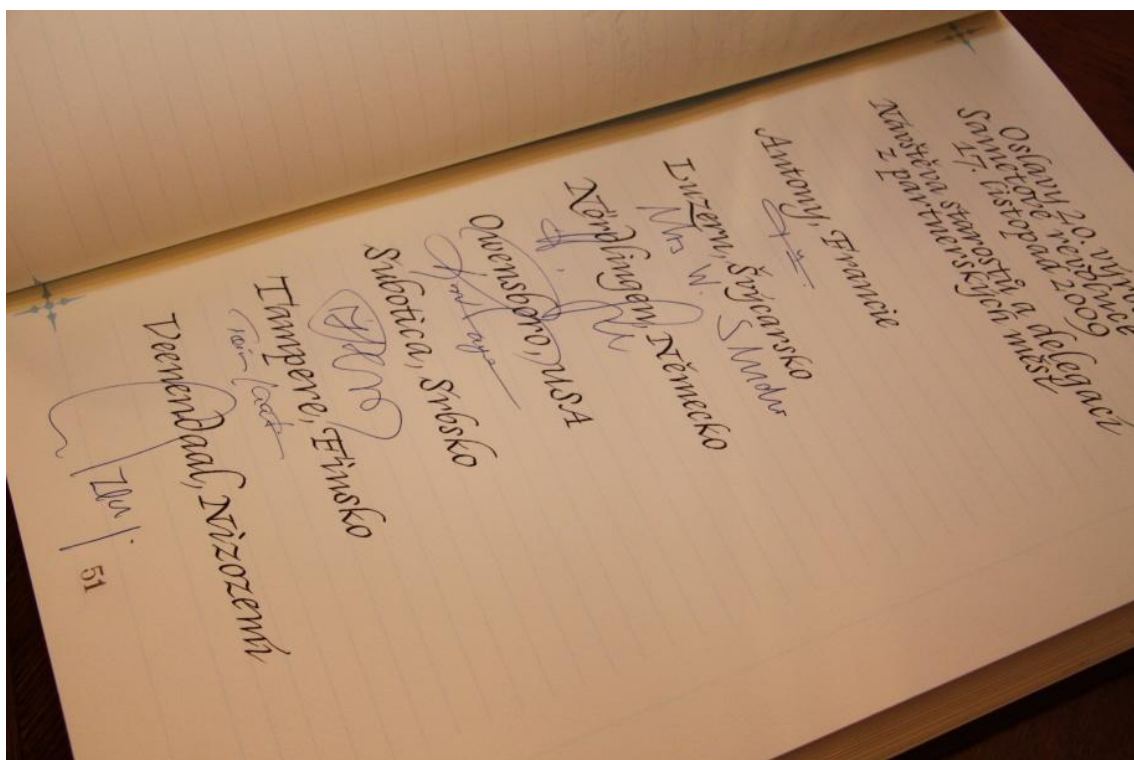 Oslavy 20. výro
Sametové revoluce
17. listopad 2009
Návštěva starostů a delegací
z partnerských měst
Antony, Francie
Luzern, Švýcarsko
Mrs W.
Nördlingen, Německo
Owensboro, USA
Subotica, Srbsko
Tampere, Finsko
Veenendaal, Nizozemí
51